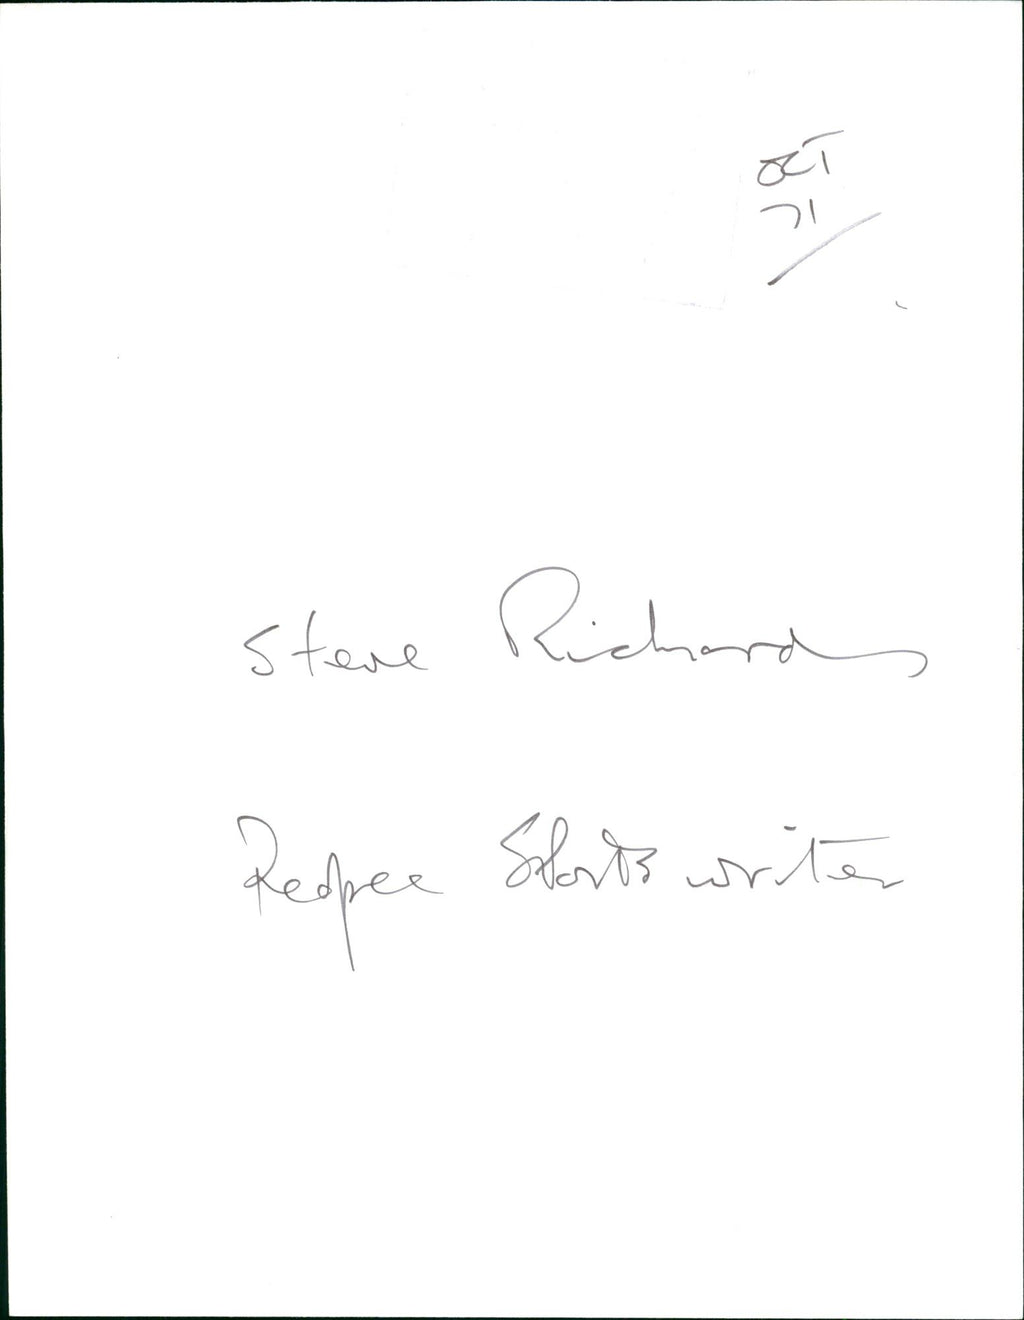 OCT
71
Steve Richards
Sports writer